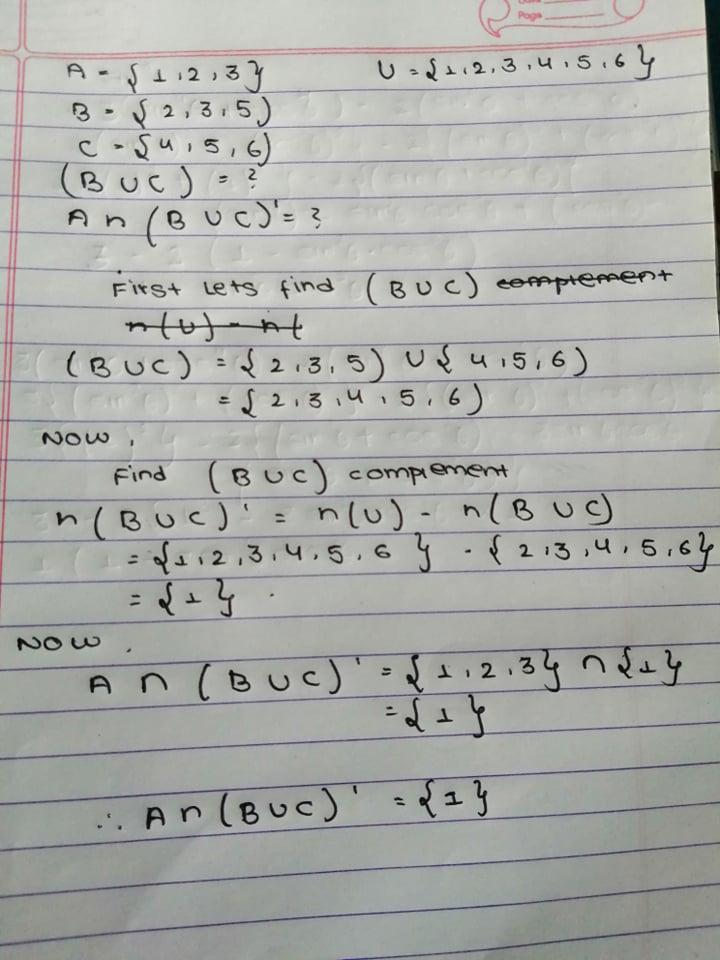 Page
A = {1,2,3} U = {1,2,3,4,5,6}
B = {2,3,5)
C = {4,5,6)
(B ∪ C) = ?
A ∩ (B ∪ C)' = ?
First Lets find (B ∪ C) complement
n(U) - n(
(B ∪ C) = {2,3,5) ∪ {4,5,6)
= {2,3,4,5,6)
NOW,
Find (B ∪ C) complement
n(B ∪ C)' = n(U) - n(B ∪ C)
= {1,2,3,4,5,6} - {2,3,4,5,6}
= {1}.
NOW,
A ∩ (B ∪ C)' = {1,2,3} ∩ {1}
= {1}
∴ A ∩ (B ∪ C)' = {1}